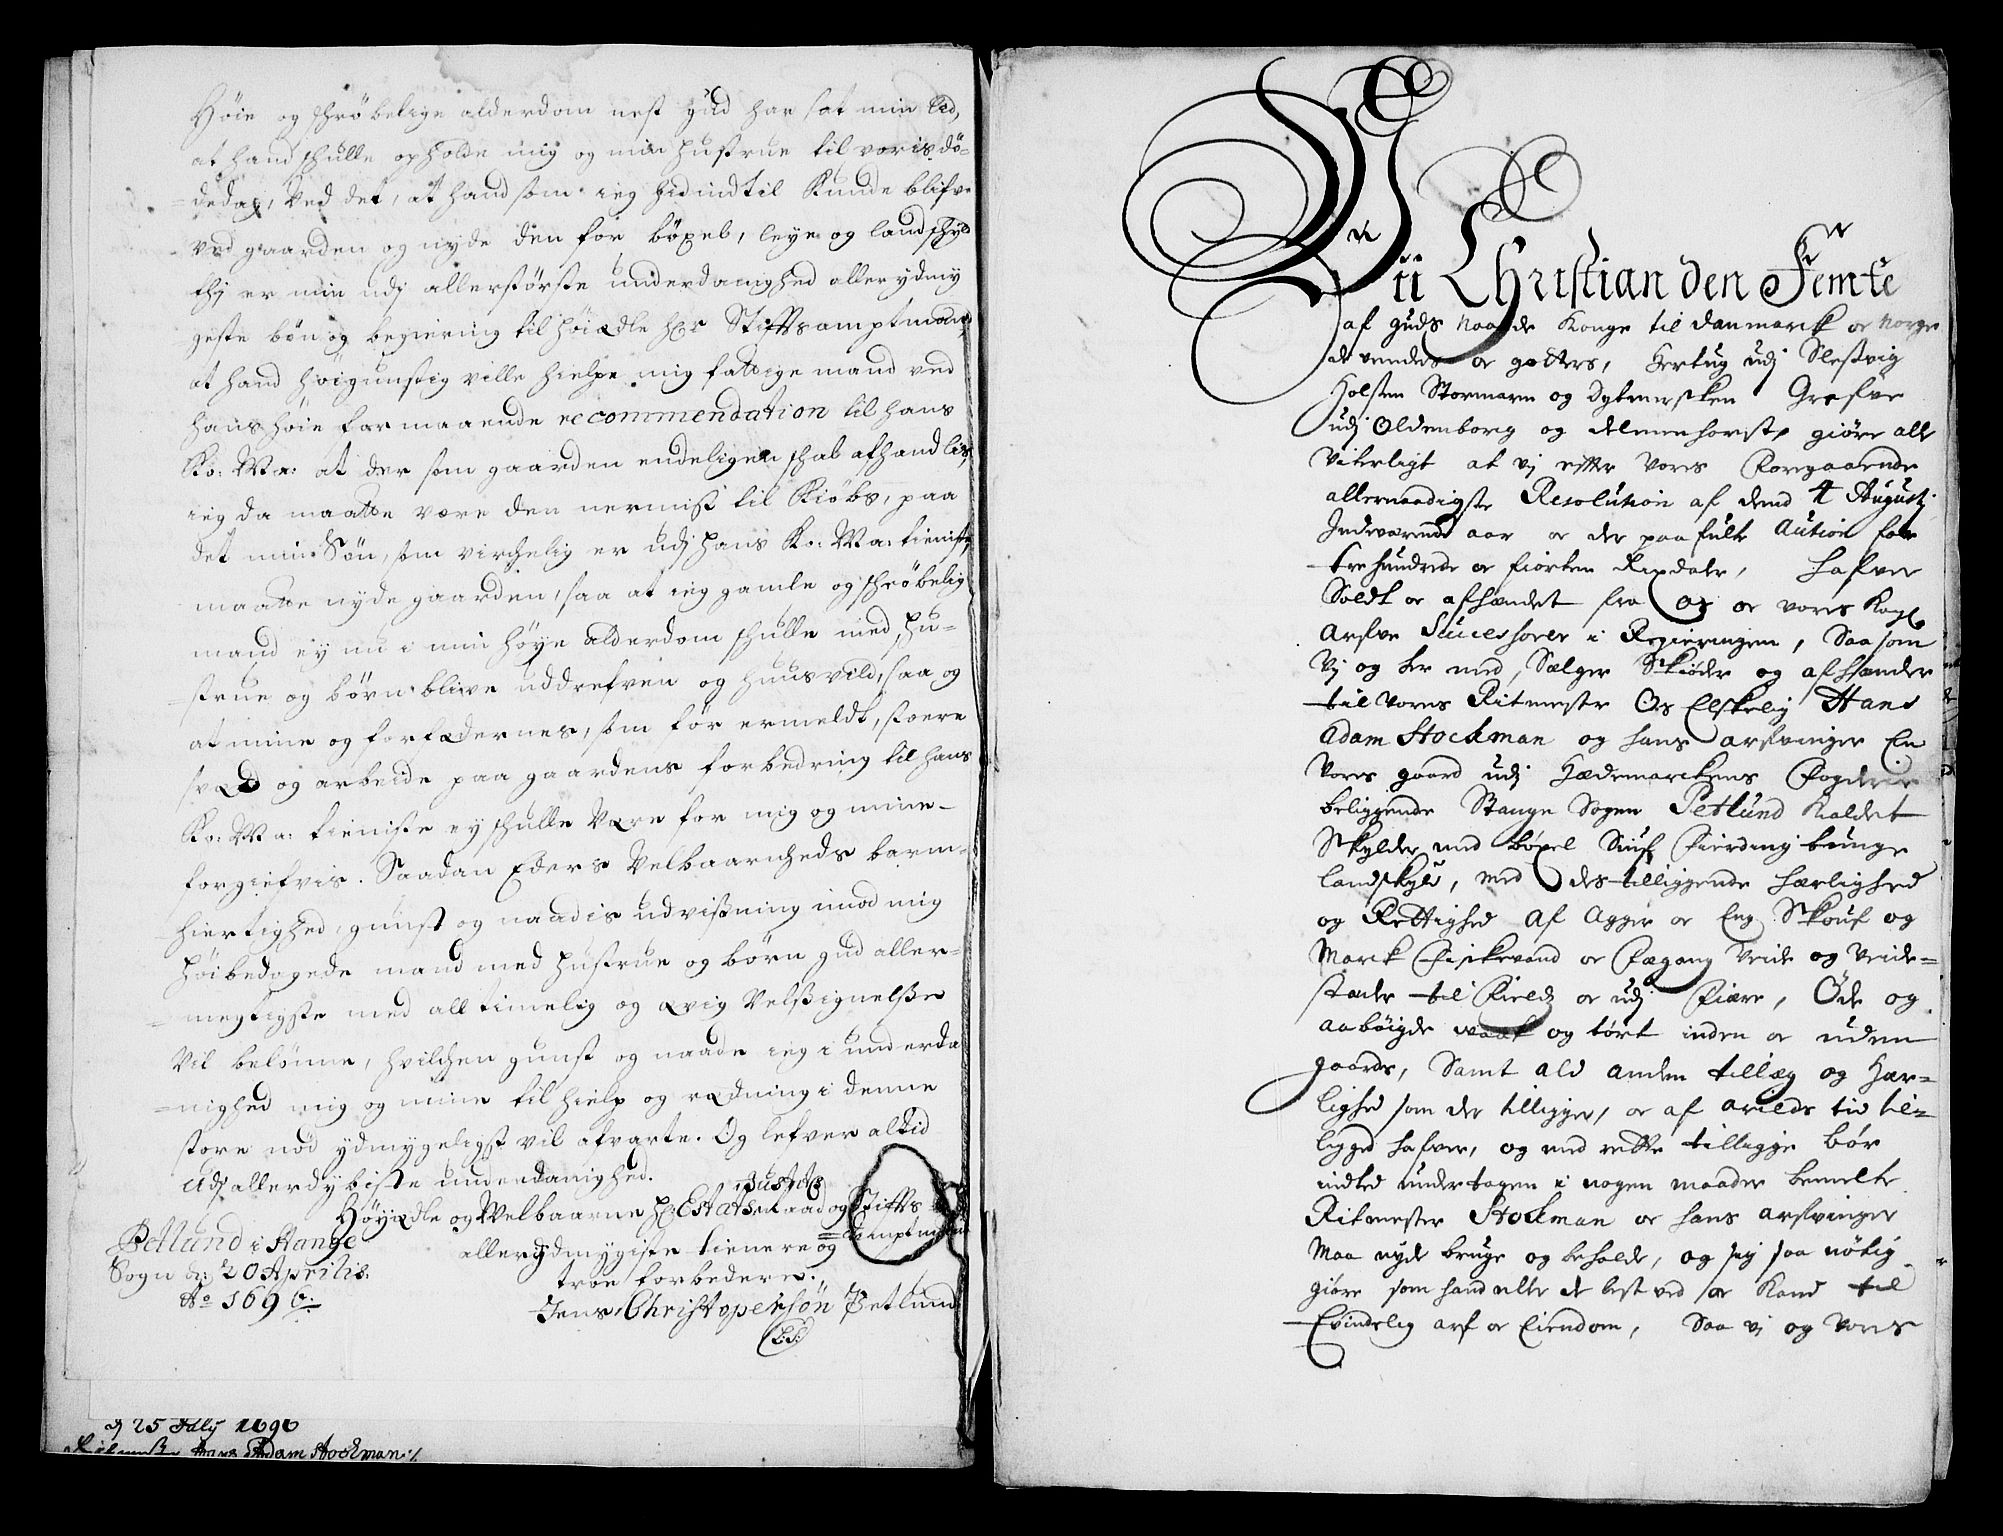 Høie og schrøbelige alderdom nest gud har sat min lid,
at hand schulle opholde mig og min hustrue til voris dö-
=dedag, Ved det, at hand som ieg hid indtil Kunde blifve
ved gaarden og nyde den for böxel, leye og landschyld
thj er min udj allerstørste underdanighed aller ydmy
geste bøn og begiering til høiædle hr Stiffts amptmand,
at hand høigunstig ville hielpe mig fattige mand ved
hans høie formaaende recommendation til hans
Ko: Ma: at der som gaarden endeligen schal afhandlis,
ieg da maatte være den nermist til Kiøbs, paa
det min Søn, som virchelig er udj hans Ko: Ma: tieniste,
maatte nyde gaarden, saa at ieg gamle og schrøbelig
mand ey nu i min høye alderdom schulle med hu-
strue og børn blive uddrefven og huusvild, saa og
at mine og forfædernes, som før ermeldt, stoere
sved og arbeide paa gaardens forbedring til hans
Ko: Ma: tieniste ey schulle være for mig og mine
forgiefvis. Saadan Eders Velbaarnheds barm-
hiertighed, gunst og naadis udvißning imod mig
høibedagede mand med hustrue og børn gud aller-
=megtigste med all timelig og ævig Velßignelße
Vil belønne, hvilchen gunst og naade ieg i underda
=nighed mig og mine til hielp og rædning i denne
store nød ydmygeligst vil afvarte. Og lefver altid
udj allerdybiste underdanighed.
Høyædle og Welbaarne hr Estats Justits Raad og Stiffts
=amptmand
allerydmygiste tienere og
troe forbedere.
Jens Christopersøn Petlund
Petlund i Stange
Sogn d: 20 Aprilis.
Ao 1696.
d 25 July 1696
Ritmester Hans Adam Stockman
Vii Christian den Femte
af Guds Naade Konge til Danmarck oc Norge
de venders oc gotters, Hertug udj Slesvig
Holsten Stormarn og Dytmersken Grefve
udj Oldenborg og delmenhorst, giøre alle
Viterligt at vj effter Vores foregaaende
allernaadigste Resolution af dend 4 Augustj
Indeværende aar oc der paa fulte Aution for
trehundrede oc fiorten Rixdaler, hafver
Soldt oc afhændet fra Os oc vores Kongl
Arfve Successorer i Regieringen, Saa som
Vj og her med Sælger Skiøder og afhænder
til Vores Ritmester Os Elskelig Hans
Adam Stockman og hans arfvinger En
Vores gaard udj Hædemarckens Fogderie
beliggende Stange Sogen Petlund Kaldet
Skylder med böxel Siuf fierding tunge
landskyld, med des tilliggende herlighed
og Rettighed af Agger oc Eng Skouf og
Marck Fiskevand oc Fægang Veide og Veide=
stader til Field oc udj Fiære, Øde og
aabøigde vaat og tört inden oc uden
gaards, Samt ald anden tillæg og Hær=
lighed som der tilligger, oc af arilds tid til=
ligged hafver, og med rette tilligge bör
indted undertagen i nogen maader bemelte
Ritmester Stockman oc hans arfvinger
Maa nyde bruge og beholde, og sig saa nøtig
giøre som hand eller de best ved oc Kand til
Evindelig arf oc Eiendom, Saa vj og vores